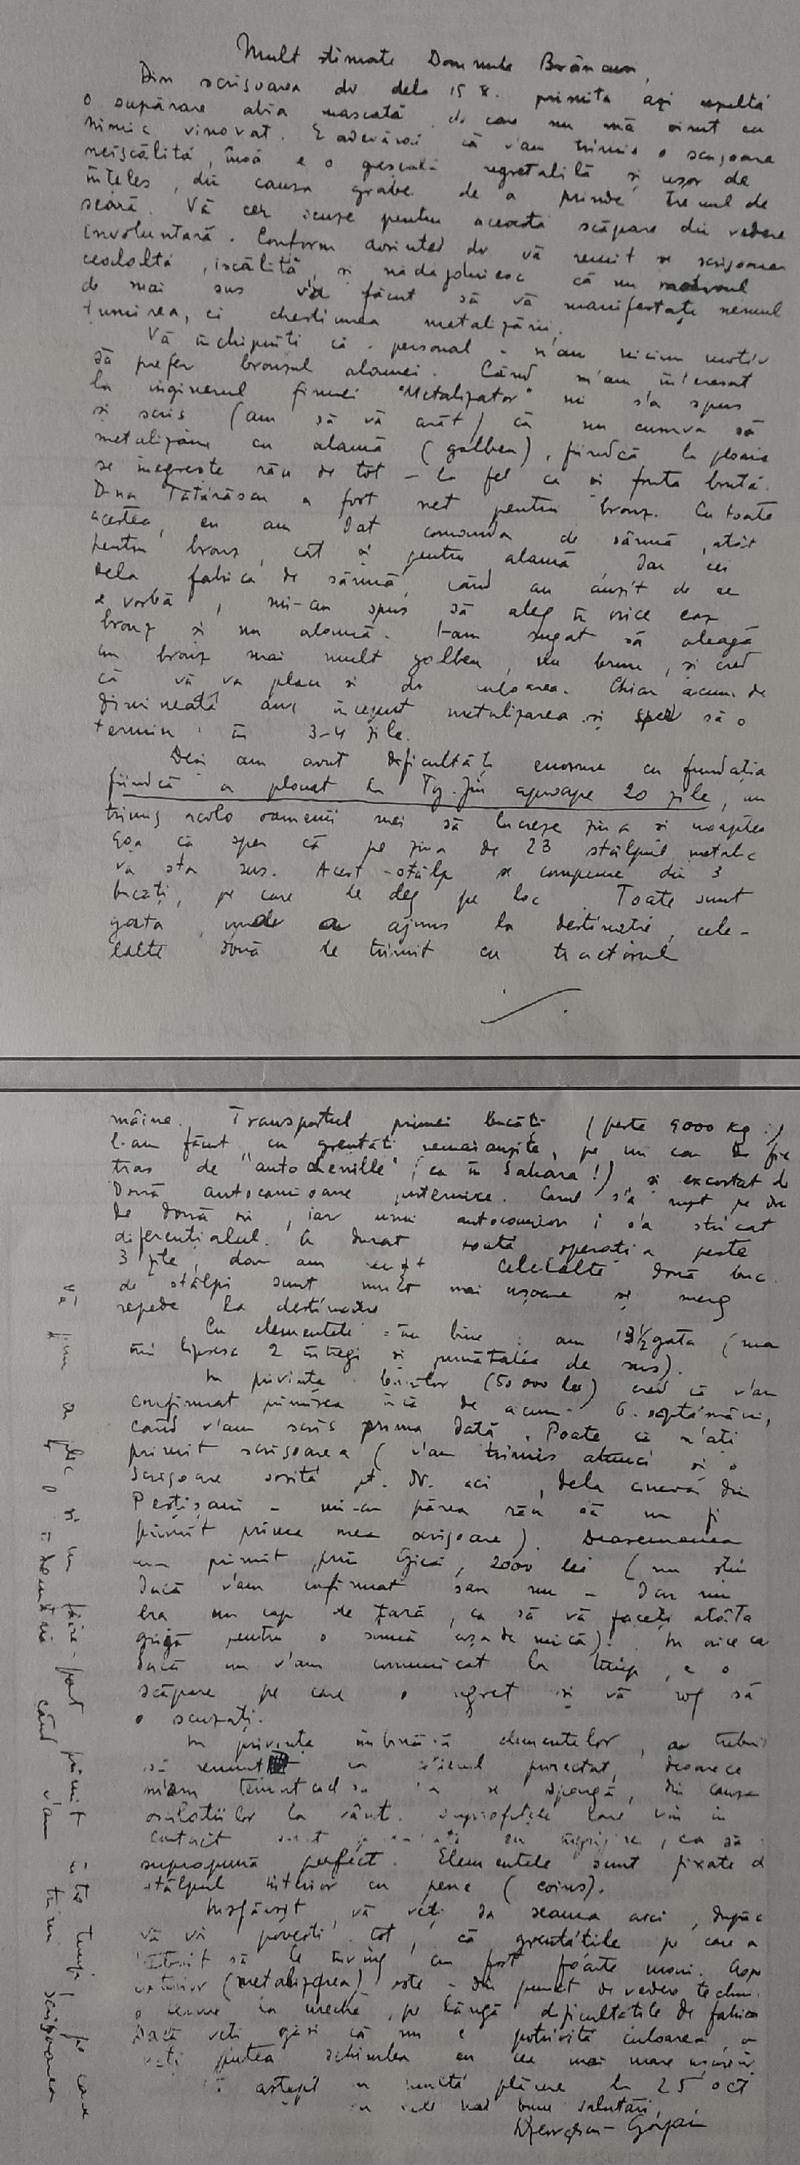 Mult stimate Domnule Brâncuși,
Din scrisoarea dv dela 15 X. primită azi
o supărare abia mascată de care nu mă simt cu
nimic vinovat. E adevărat că v'am trimis o scrisoare
neiscălită, însă e o greșală regretabilă și ușor de
înțeles, din cauza grabei de a prinde trenul de
seară. Vă cer scuze pentru această scăpare din vedere
involuntară. Conform dorinței dv vă remit și scrisoarea
iscălită, și nădăjduiesc că nu
de mai sus v'a făcut să vă manifestați nemul
țumirea, ci chestiunea metalizării.
Vă închipuiți că - personal - n'am niciun motiv
să prefer bronzul alamei. Când m'am interesat
la inginerul firmei "Metalizator" mi s'a spus
și scris (am să vă arăt) că nu cumva să
metalizăm cu alamă (galben), fiindcă la ploaie
se înegrește rău de tot - la fel ca și fonta brută.
D-na Tătărăscu a fost net pentru bronz. Cu toate
acestea, eu am dat comanda de sârmă, atât
pentru bronz, cât și pentru alamă, dar cei
dela fabrica de sârmă, când au auzit de ce
e vorbă, mi-au spus să aleg în orice caz
bronz și nu alamă. I-am rugat să aleagă
un bronz mai mult galben, nu brun, și cred
că vă va place și dv culoarea. Chiar acum de
dimineață am început metalizarea și sper să o
termin în 3-4 zile.
Deși am avut dificultăți enorme cu fundația
fiindcă a plouat la Tg. Jiu aproape 20 zile, am
trimis acolo oamenii mei să lucreze ziua și noaptea
așa că sper că pe ziua de 23 stâlpul metalic
va sta sus. Acest stâlp se compune din 3
bucăți, pe care le leg pe loc. Toate sunt
gata, una a ajuns la destinație, cele-
lalte două le trimit cu tractorul
mâine. Transportul primei bucăți (peste 9000 kg.)
l-am făcut cu greutăți nemaiauzite, pe un car de fier
tras de "autochenille" (ca în Sahara!) și escortat de
două autocamioane puternice. Carul s'a rupt pe drum
de două ori, iar unui autocamion i s'a stricat
diferențialul. A durat toată operația peste
3 zile, dar am Celelalte două buc.
de stâlpi sunt mult mai ușoare și merg
repede la destinație
Cu elementele stau bine: am 13½ gata (mai
îmi lipsesc 2 întregi și jumătatea de sus).
În privința banilor (50 000 lei) cred că v'am
confirmat primirea încă de acum 6 săptămâni,
când v'am scris prima dată. Poate că n'ați
primit scrisoarea (v'am trimis atunci și o
scrisoare sosită pt. Dv. aci, dela cineva din
Peștișani - mi-ar părea rău să nu fi
primit prima mea scrisoare). Deasemenea
am primit, prin Gică, 2000 lei (nu știu
dacă v'am confirmat sau nu - dar nu
era un cap de țară, ca să vă faceți atâta
grijă pentru o sumă așa de mică). În orice caz
dacă nu v'am comunicat la timp, e o
scăpare pe care o regret și vă rog să
o scuzați.
În privința îmbinării elementelor, a trebuit
să renunț la proiectat, deoarece
m'am temut că se din cauza
oscilațiilor la vânt. Suprafețele care vin în
contact sunt cu îngrijire, ca să
suprapună perfect. Elementele sunt fixate de
stâlpul interior cu pene (coins).
Însfârșit, vă veți da seama aici, după ce
vă voi povesti tot, că greutățile pe care a
trebuit să le înving au fost foarte mari.
(metalizarea) este - din punct de vedere techn.
la ureche, pe lângă dificultățile de fabric
Dacă veți găsi că nu e potrivită culoarea, o
veți putea schimba cu cea mai mare ușurință
Vă aștept cu multă plăcere la 25 oct
cu cele mai bune salutări,
Georgescu-Gorjan